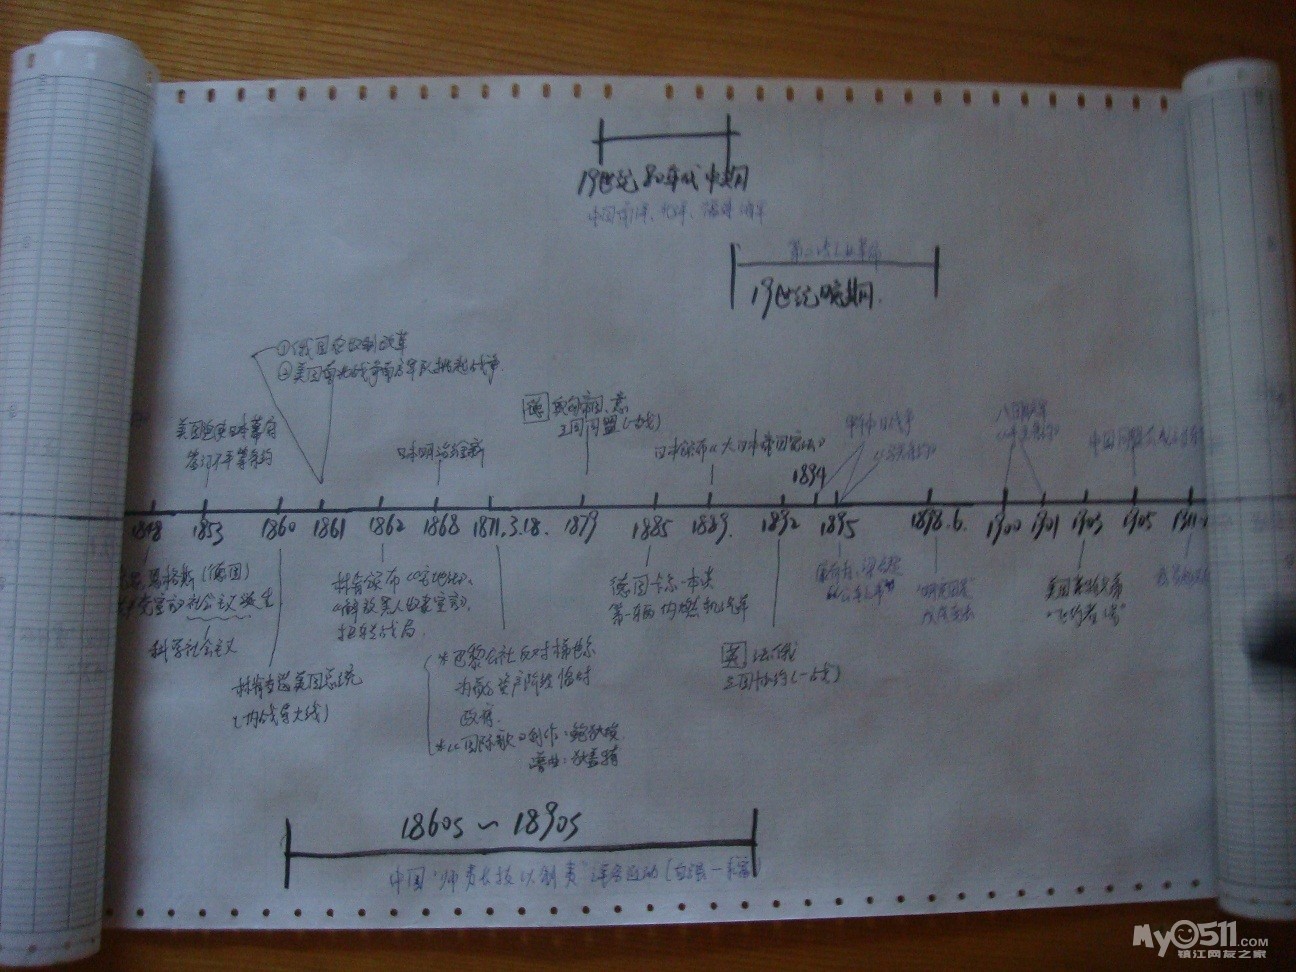 19世纪80年代中期
中国南洋、北洋、福建海军
第二次工业革命
19世纪晚期
①俄国农奴制改革
②美国南北战争南方军队挑起战争
美国迫使日本幕府
签订不平等条约
日本明治维新
德 奥匈帝国、意
三国同盟(一战)
日本颁布《大日本帝国宪法》
甲午中日战争
《马关条约》
八国联军
《辛丑条约》
中国同盟会成立
1848 1853 1860 1861 1862 1868 1871.3.18. 1879 1885 1889. 1892 1894 1895 1898.6. 1900 1901 1903 1905 1911
恩格斯(德国)
社会主义诞生
科学社会主义
林肯当选美国总统
(内战导火线)
林肯颁布《宅地法》、
《解放黑人奴隶宣言》,
扭转战局.
*巴黎公社反对梯也尔
为首资产阶级临时
政府.
*《国际歌》创作:鲍狄埃
谱曲:狄盖特
德国卡尔·本茨
第一辆内燃机汽车
英 法、俄
三国协约(一战)
康有为、梁启超
"公车上书"
戊戌变法
美国莱特兄弟
"飞行者1号"
1860s ~ 1890s
中国"师夷长技以制夷"洋务运动(自强—求富)
My0511.COM
镇江网友之家